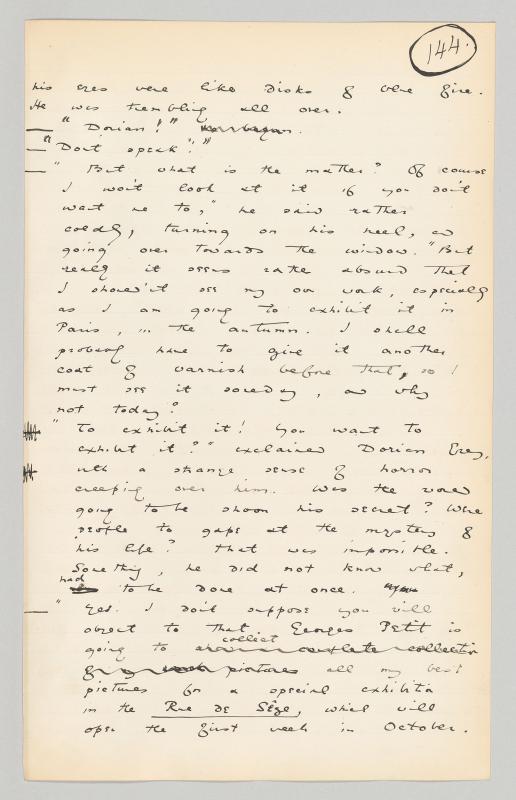 144.
his eyes were like disks of blue fire.
He was trembling all over.
"Dorian!"
"Dont speak!"
"But what is the matter? Of course
I wont look at it if you dont
want me to," he said rather
coldly, turning on his heel, and
going over towards the window. "But
really it seems rather absurd that
I should'nt see my own work, especially
as I am going to exhibit it in
Paris, in the autumn. I shall
probably have to give it another
coat of varnish before that, so I
must see it someday, and why
not today?"
"To exhibit it! You want to
exhibit it?" exclaimed Dorian Gray,
with a strange sense of horror
creeping over him. Was the world
going to be shown his secret? Were
people to gape at the mystery of
his life? That was impossible.
Something, he did not know what,
had to be done at once.
"Yes. I dont suppose you will
object to that. Georges Petit is
going to collect
all my best
pictures for a special exhibition
in the Rue de Sèze, which will
open the first week in October.